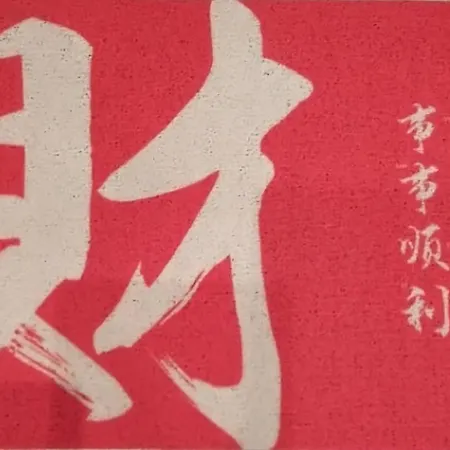 財
事事顺利